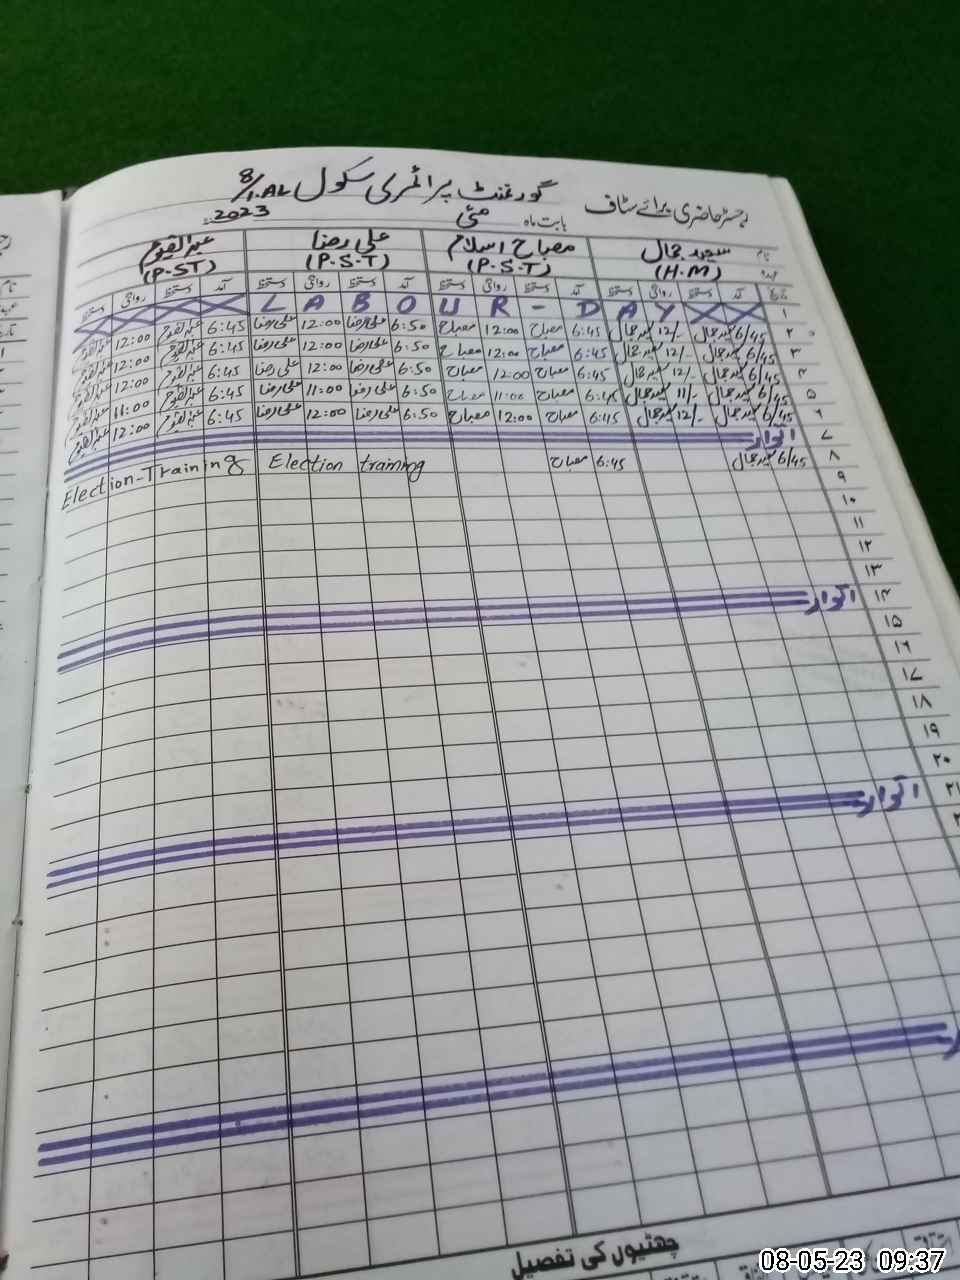 رجسٹر حاضری برائے سٹاف گورنمنٹ پرائمری سکول 8/1.AL
بابت ماہ مئی 2023
نام سعید جمال مصباح اسلام علی رضا عبدالقیوم
عہدہ (H.M) (P.S.T) (P.S.T) (P.ST)
تاریخ آمد دستخط روانگی دستخط آمد دستخط روانگی دستخط آمد دستخط روانگی دستخط آمد دستخط روانگی دستخط
۱ LABOUR - DAY
۲ 6/45 12/- 6:45 مصباح 12:00 مصباح 6:50 علی رضا 12:00 علی رضا 6:45 عبدالقیوم 12:00 عبدالقیوم
۳ 6/45 12/- 6:45 مصباح 12:00 مصباح 6:50 علی رضا 12:00 علی رضا 6:45 عبدالقیوم 12:00 عبدالقیوم
۴ 6/45 12/- 6:45 مصباح 12:00 مصباح 6:50 علی رضا 12:00 علی رضا 6:45 عبدالقیوم 12:00 عبدالقیوم
۵ 6/45 11/- 6:45 مصباح 11:00 مصباح 6:50 علی رضا 11:00 علی رضا 6:45 عبدالقیوم 11:00 عبدالقیوم
۶ 6/45 12/- 6:45 مصباح 12:00 مصباح 6:50 علی رضا 12:00 علی رضا 6:45 عبدالقیوم 12:00 عبدالقیوم
۷ اتوار
۸ 6/45 6:45 مصباح Election training Election-Training
۹
۱۰
۱۱
۱۲
۱۳
۱۴ اتوار
۱۵
۱۶
۱۷
۱۸
۱۹
۲۰
۲۱ اتوار
چھٹیوں کی تفصیل
08-05-23 09:37